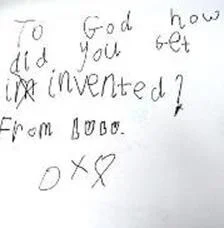 To God how
did you get
in invented?
From
o x o